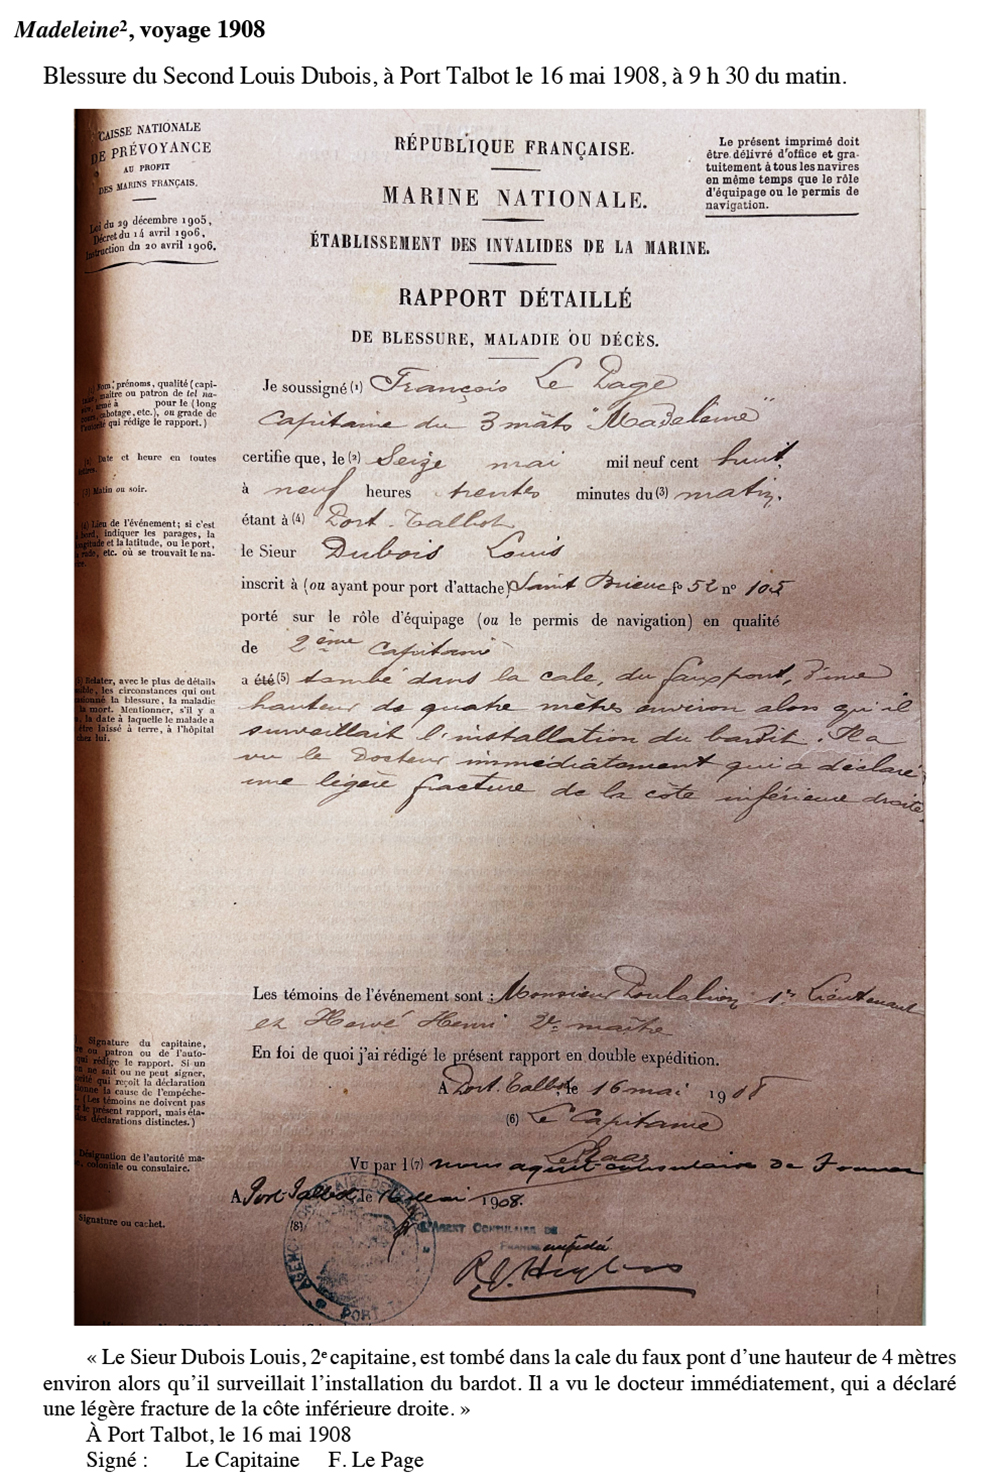 Madeleine², voyage 1908
Blessure du Second Louis Dubois, à Port Talbot le 16 mai 1908, à 9 h 30 du matin.
CAISSE NATIONALE
DE PRÉVOYANCE
AU PROFIT
DES MARINS FRANÇAIS.
Loi du 29 décembre 1905,
Décret du 14 avril 1906,
Instruction du 20 avril 1906.
RÉPUBLIQUE FRANÇAISE.
MARINE NATIONALE.
ÉTABLISSEMENT DES INVALIDES DE LA MARINE.
Le présent imprimé doit
être délivré d'office et gra-
tuitement à tous les navires
en même temps que le rôle
d'équipage ou le permis de
navigation.
RAPPORT DÉTAILLÉ
DE BLESSURE, MALADIE OU DÉCÈS.
Nom, prénoms, qualité (capi-
maître ou patron de tel na-
à pour le (long
cabotage, etc.), ou grade de
qui rédige le rapport.)
Je soussigné (1) François Le Page
Capitaine du 3 mâts "Madeleine"
Date et heure en toutes
certifie que, le (2) Seize mai mil neuf cent huit,
Matin ou soir.
à neuf heures trentes minutes du (3) matin,
(4) Lieu de l'événement; si c'est
bord, indiquer les parages, la
et la latitude, ou le port,
etc. où se trouvait le na-
étant à (4) Port-Talbot
le Sieur Dubois Louis
inscrit à (ou ayant pour port d'attache) Saint Brieuc fo 52 no 105
porté sur le rôle d'équipage (ou le permis de navigation) en qualité
de 2ème Capitaine
Relater, avec le plus de détails
les circonstances qui ont
la blessure, la maladie
la mort. Mentionner, s'il y a
la date à laquelle le malade a
être laissé à terre, à l'hôpital
chez lui.
a été (5) tombé dans la cale, du faux pont, d'une
hauteur de quatre mètres environ alors qu'il
surveillait l'installation du bardit. Il a
vu le Docteur immédiatement qui a déclaré
une légère fracture de la côte inférieure droite
Les témoins de l'événement sont : Monsieur 1er Lieutenant
et Hervé Henri 2e maître
En foi de quoi j'ai rédigé le présent rapport en double expédition.
Signature du capitaine,
ou patron ou de l'auto-
qui rédige le rapport. Si un
ne sait ou ne peut signer,
qui reçoit la déclaration
la cause de l'empêche-
(Les témoins ne doivent pas
le présent rapport, mais éta-
déclarations distinctes.)
A Port-Talbot, le 16 mai 1908
(6) Le Capitaine
Le Page
Désignation de l'autorité ma-
coloniale ou consulaire.
Vu par (7) nous agent consulaire de France
A Port-Talbot, le 16 Mai 1908.
Signature ou cachet.
(8)
L'AGENT CONSULAIRE DE
FRANCE
PORT T
« Le Sieur Dubois Louis, 2e capitaine, est tombé dans la cale du faux pont d'une hauteur de 4 mètres
environ alors qu'il surveillait l'installation du bardot. Il a vu le docteur immédiatement, qui a déclaré
une légère fracture de la côte inférieure droite. »
À Port Talbot, le 16 mai 1908
Signé : Le Capitaine F. Le Page